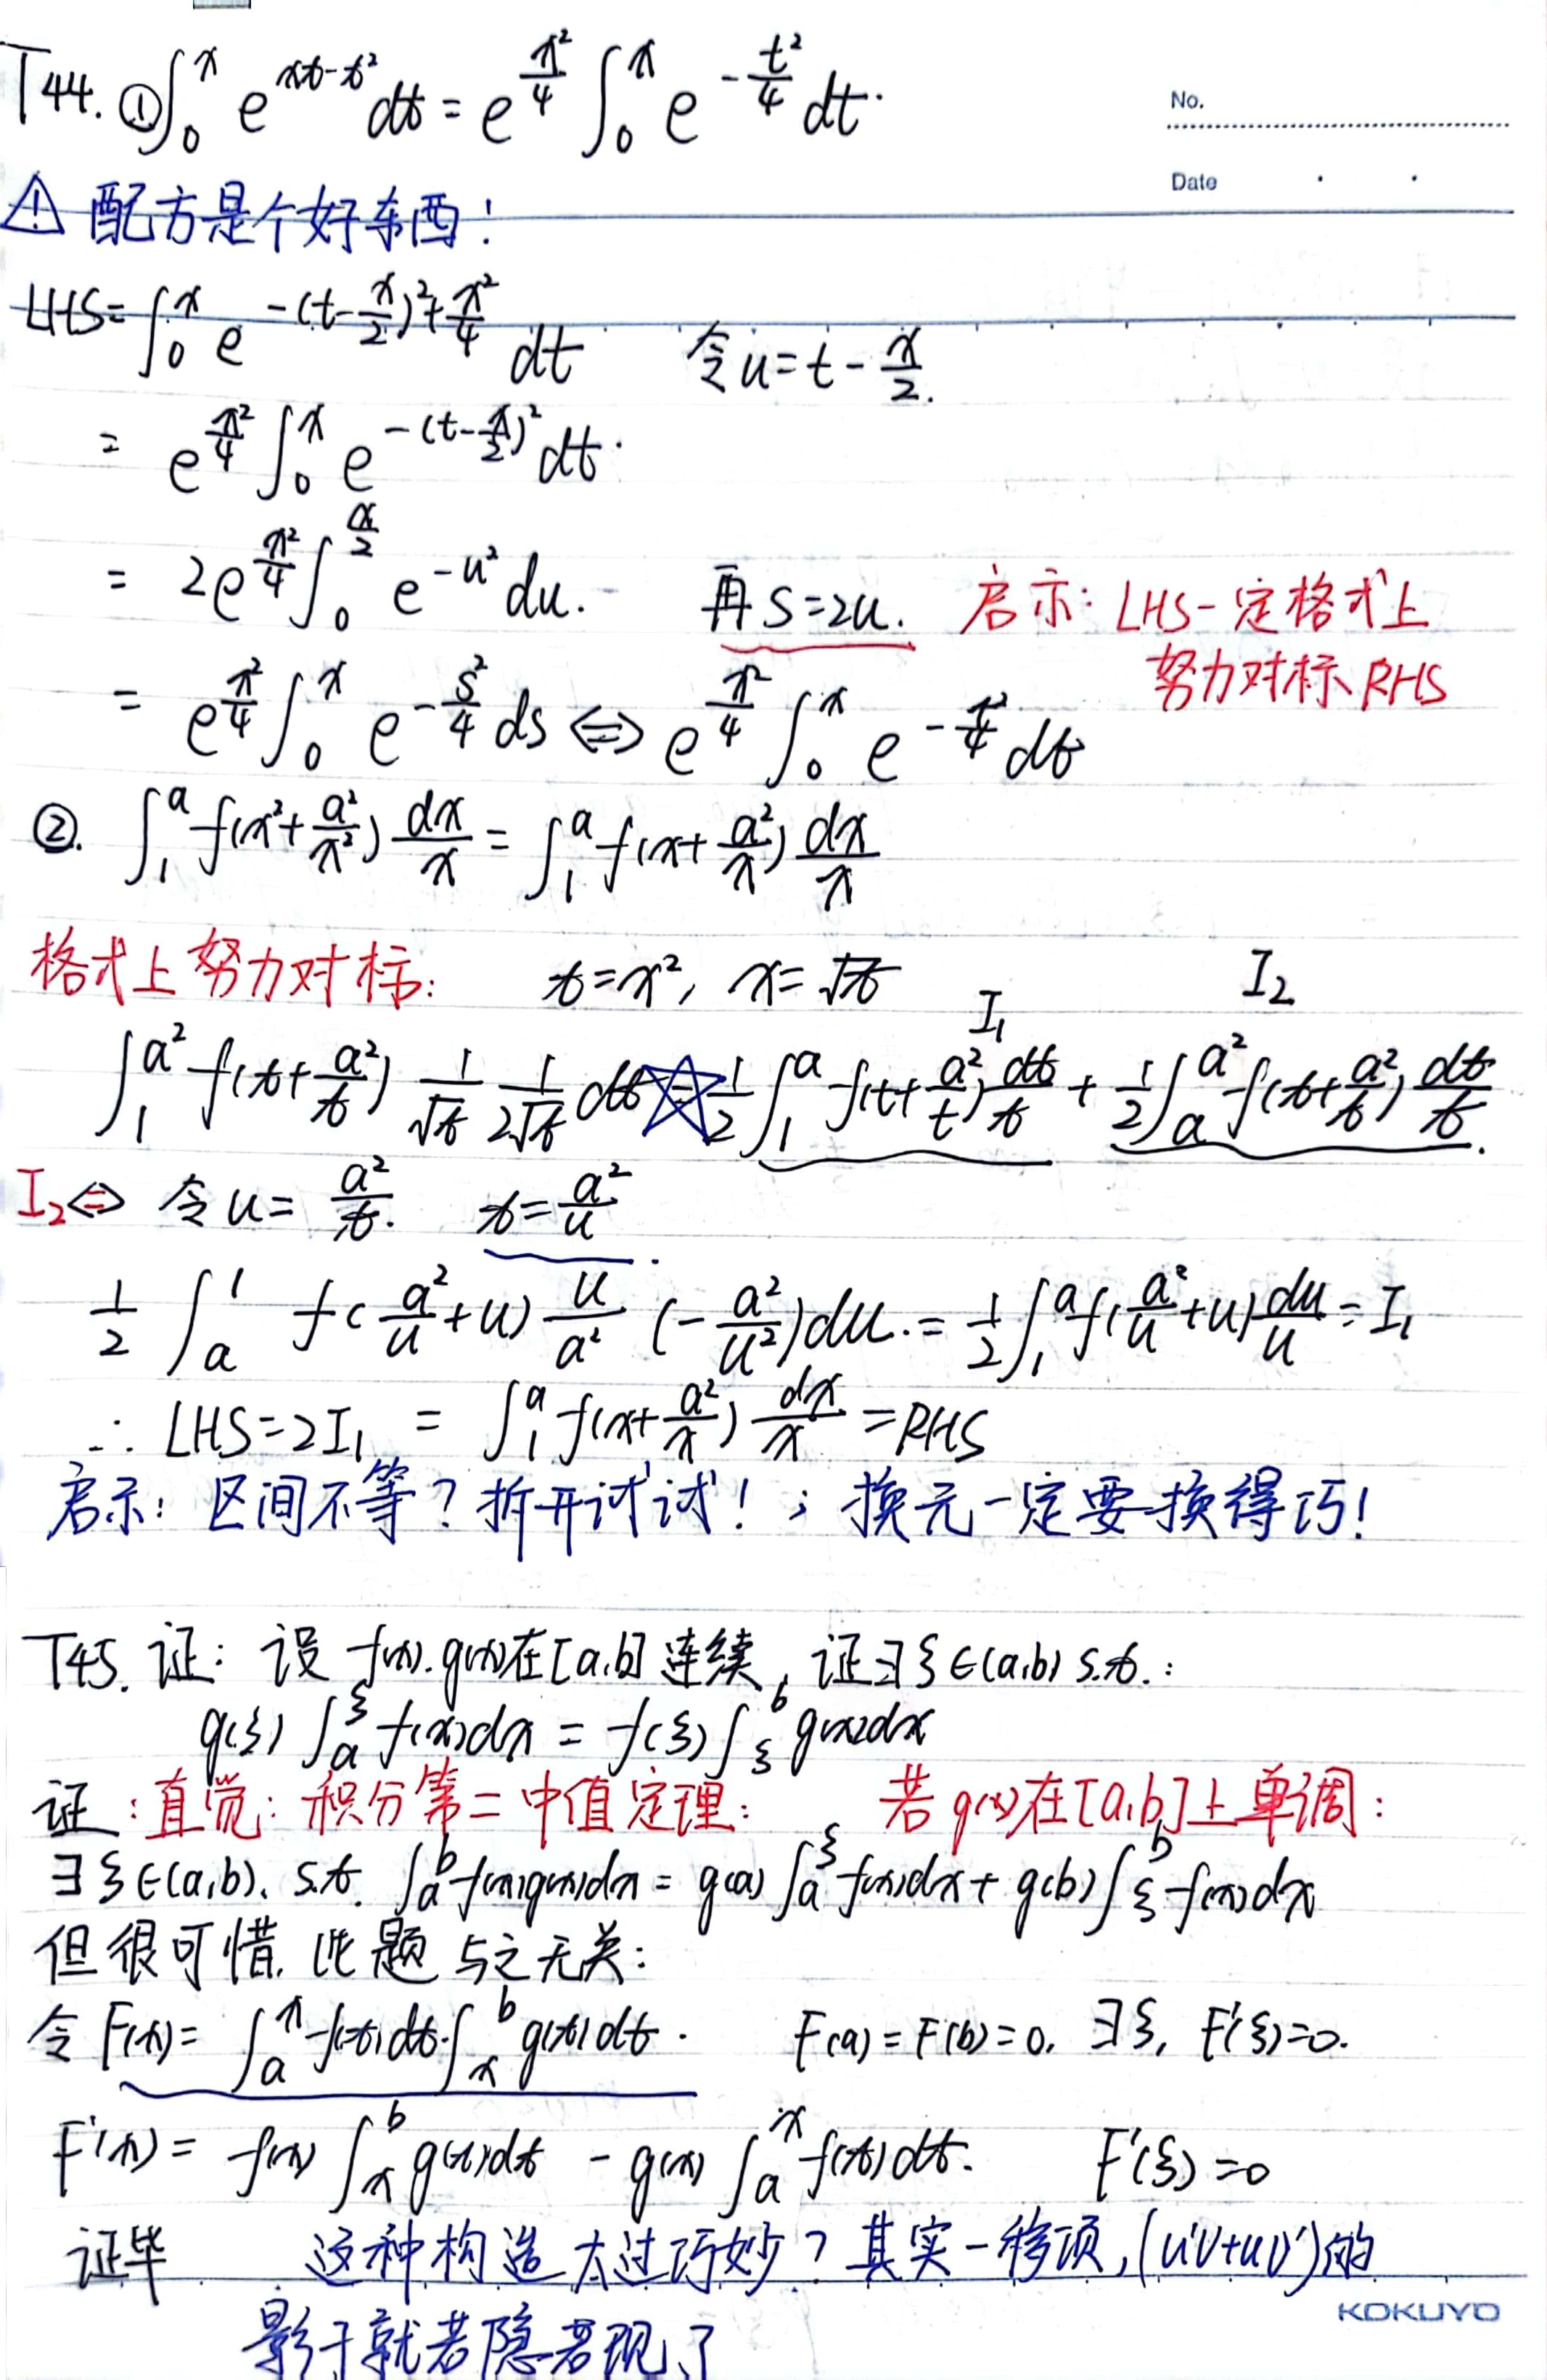 No.
Date
T44. ①∫₀ˣ e^(xt-t²) dt = e^(x²/4) ∫₀ˣ e^(-t²/4) dt.
⚠ 配方是个好东西!
LHS = ∫₀ˣ e^(-(t-x/2)²+x²/4) dt 令u=t-x/2.
= e^(x²/4) ∫₀ˣ e^(-(t-x/2)²) dt.
= 2e^(x²/4) ∫₀^(x/2) e^(-u²) du. 再S=2u. 启示: LHS一定格式上
努力对标RHS
= e^(x²/4) ∫₀ˣ e^(-s²/4) ds ⇔ e^(x²/4) ∫₀ˣ e^(-t²/4) dt
②. ∫₁ᵃ f(x²+a²/x²) dx/x = ∫₁ᵃ f(x+a²/x) dx/x
格式上努力对标: t=x², x=√t I₁ I₂
∫₁^(a²) f(t+a²/t) 1/√t 1/(2√t) dt ☆= 1/2 ∫₁ᵃ f(t+a²/t) dt/t + 1/2 ∫ₐ^(a²) f(t+a²/t) dt/t.
I₂⇔ 令u=a²/t. t=a²/u.
1/2 ∫ₐ¹ f(a²/u+u) u/a² (-a²/u²) du. = 1/2 ∫₁ᵃ f(a²/u+u) du/u = I₁
∴ LHS=2I₁ = ∫₁ᵃ f(x+a²/x) dx/x = RHS
启示: 区间不等? 拆开试试! ; 换元一定要换得巧!
T45. 证: 设f(x).g(x)在[a,b]连续, 证∃ξ∈(a,b) s.t.:
g(ξ) ∫ₐ^ξ f(x)dx = f(ξ) ∫_ξ^b g(x)dx
证: 直觉: 积分第二中值定理: 若g(x)在[a,b]上单调:
∃ξ∈(a,b), s.t. ∫ₐ^b f(x)g(x)dx = g(a) ∫ₐ^ξ f(x)dx + g(b) ∫_ξ^b f(x)dx
但很可惜, 此题与之无关:
令F(x)= ∫ₐˣ f(t)dt·∫ₓ^b g(t)dt. F(a)=F(b)=0, ∃ξ, F'(ξ)=0.
F'(x)= f(x) ∫ₓ^b g(t)dt - g(x) ∫ₐˣ f(t)dt. F'(ξ)=0
证毕 这种构造太过巧妙? 其实一移项, (u'v+uv')的
影子就若隐若现了
KOKUYO